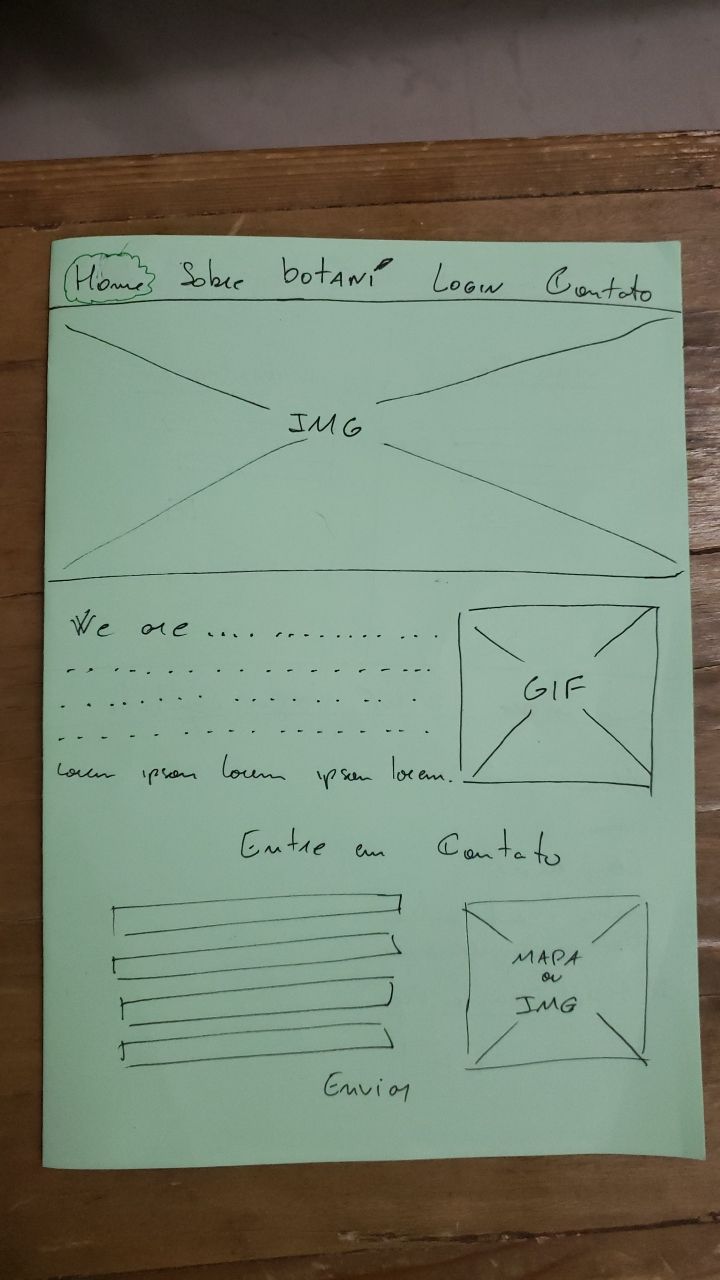 Home Sobre botaní Login Contato
IMG
We are .... .......... ...
GIF
Lorem ipson lorem ipson lorem.
Entre em Contato
MAPA
ou
IMG
Enviar